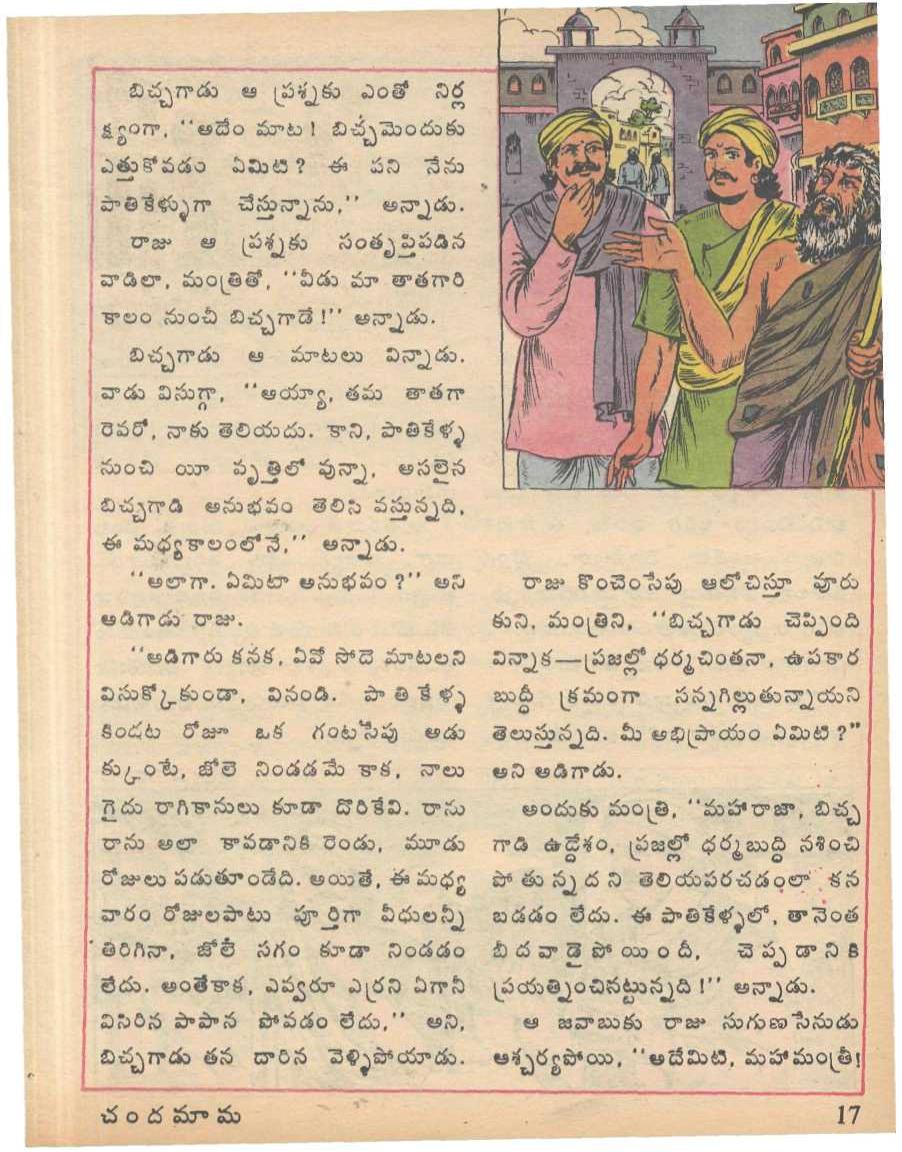 బిచ్చగాడు ఆ ప్రశ్నకు ఎంతో నిర్ల
క్ష్యంగా, ‘‘అదేం మాట! బిచ్చమెందుకు
ఎత్తుకోవడం ఏమిటి? ఈ పని నేను
పాతికేళ్ళుగా చేస్తున్నాను,’’ అన్నాడు.
రాజు ఆ ప్రశ్నకు సంతృప్తిపడిన
వాడిలా, మంత్రితో, ‘‘వీడు మా తాతగారి
కాలం నుంచీ బిచ్చగాడే!’’ అన్నాడు.
బిచ్చగాడు ఆ మాటలు విన్నాడు.
వాడు విసుగ్గా, ‘‘అయ్యా, తమ తాతగా
రెవరో, నాకు తెలియదు. కాని, పాతికేళ్ళ
నుంచి యీ వృత్తిలో వున్నా, అసలైన
బిచ్చగాడి అనుభవం తెలిసి వస్తున్నది,
ఈ మధ్యకాలంలోనే,’’ అన్నాడు.
‘‘అలాగా. ఏమిటా అనుభవం?’’ అని
అడిగాడు రాజు.
‘‘అడిగారు కనక, ఏవో సోదె మాటలని
విసుక్కోకుండా, వినండి. పాతికేళ్ళ
కిందట రోజూ ఒక గంటసేపు అడు
క్కుంటే, జోలె నిండడమే కాక, నాలు
గైదు రాగికానులు కూడా దొరికేవి. రాను
రాను అలా కావడానికి రెండు, మూడు
రోజులు పడుతూండేది. అయితే, ఈ మధ్య
వారం రోజులపాటు పూర్తిగా వీధులన్నీ
తిరిగినా, జోలె సగం కూడా నిండడం
లేదు. అంతేకాక, ఎవ్వరూ ఎర్రని ఏగానీ
విసిరిన పాపాన పోవడం లేదు,’’ అని,
బిచ్చగాడు తన దారిన వెళ్ళిపోయాడు.
రాజు కొంచెంసేపు ఆలోచిస్తూ వూరు
కుని, మంత్రిని, ‘‘బిచ్చగాడు చెప్పింది
విన్నాక—ప్రజల్లో ధర్మచింతనా, ఉపకార
బుద్ధీ క్రమంగా సన్నగిల్లుతున్నాయని
తెలుస్తున్నది. మీ అభిప్రాయం ఏమిటి?’’
అని అడిగాడు.
అందుకు మంత్రి, ‘‘మహారాజా, బిచ్చ
గాడి ఉద్దేశం, ప్రజల్లో ధర్మబుద్ధి నశించి
పోతున్నదని తెలియపరచడంలా కన
బడడం లేదు. ఈ పాతికేళ్ళలో, తానెంత
బీదవాడైపోయిందీ, చెప్పడానికి
ప్రయత్నించినట్టున్నది!’’ అన్నాడు.
ఆ జవాబుకు రాజు సుగుణసేనుడు
ఆశ్చర్యపోయి, ‘‘అదేమిటి, మహామంత్రీ!
చందమామ
17